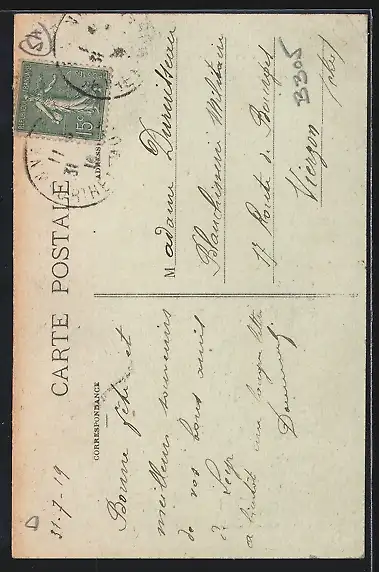 CARTE POSTALE
CORRESPONDANCE
ADRESSE
31-7-19
Bonne fête et
meilleurs souvenirs
de vos bons amis
à bientôt une longue lettre
Madame Durruisseau
Blanchisserie Militaire
17 Route de Bourges
Vierzon (cher)
15c
B305